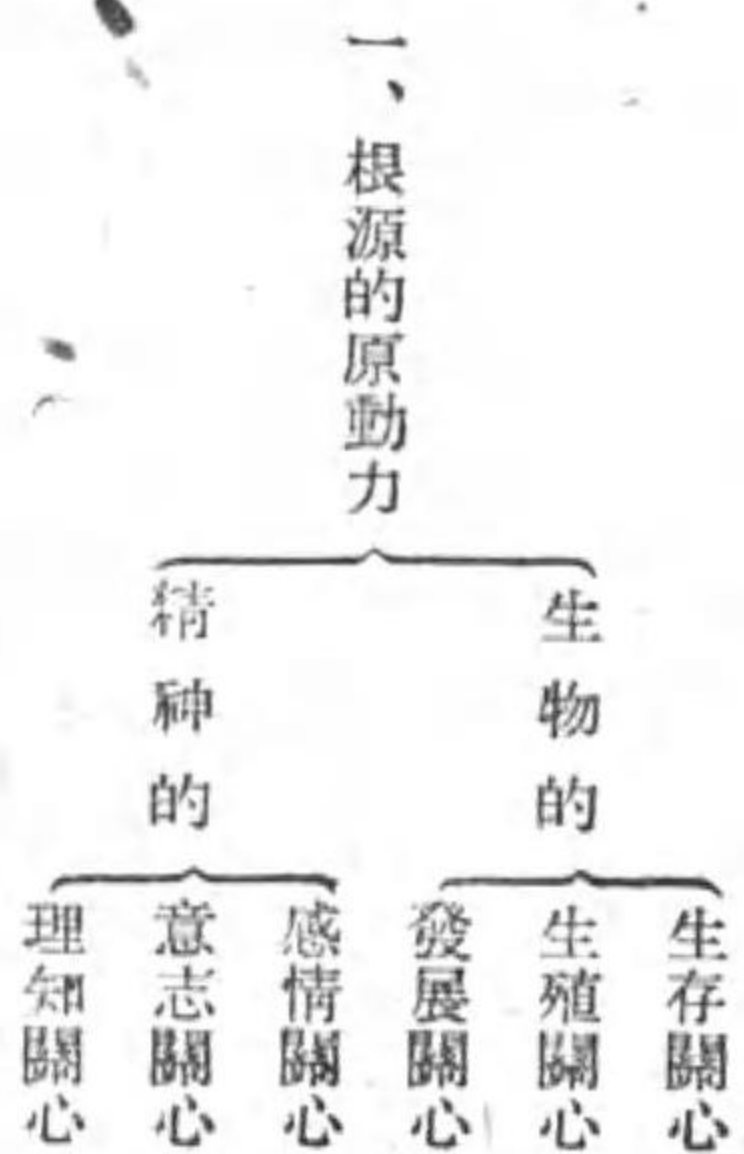 一、根源的原動力
生物的
生存關心
生殖關心
發展關心
精神的
感情關心
意志關心
理知關心